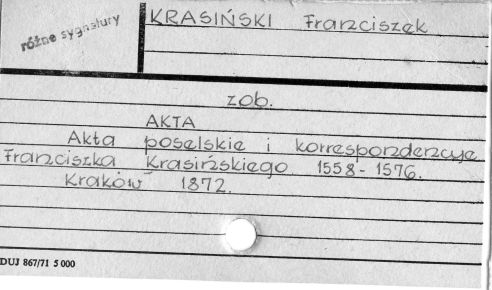 różne sygnatury
KRASIŃSKI Franciszek
zob.
AKTA
Akta poselskie i korrespondencye
Franciszka Krasińskiego 1558-1576.
Kraków 1872.
DUJ 867/71 5 000